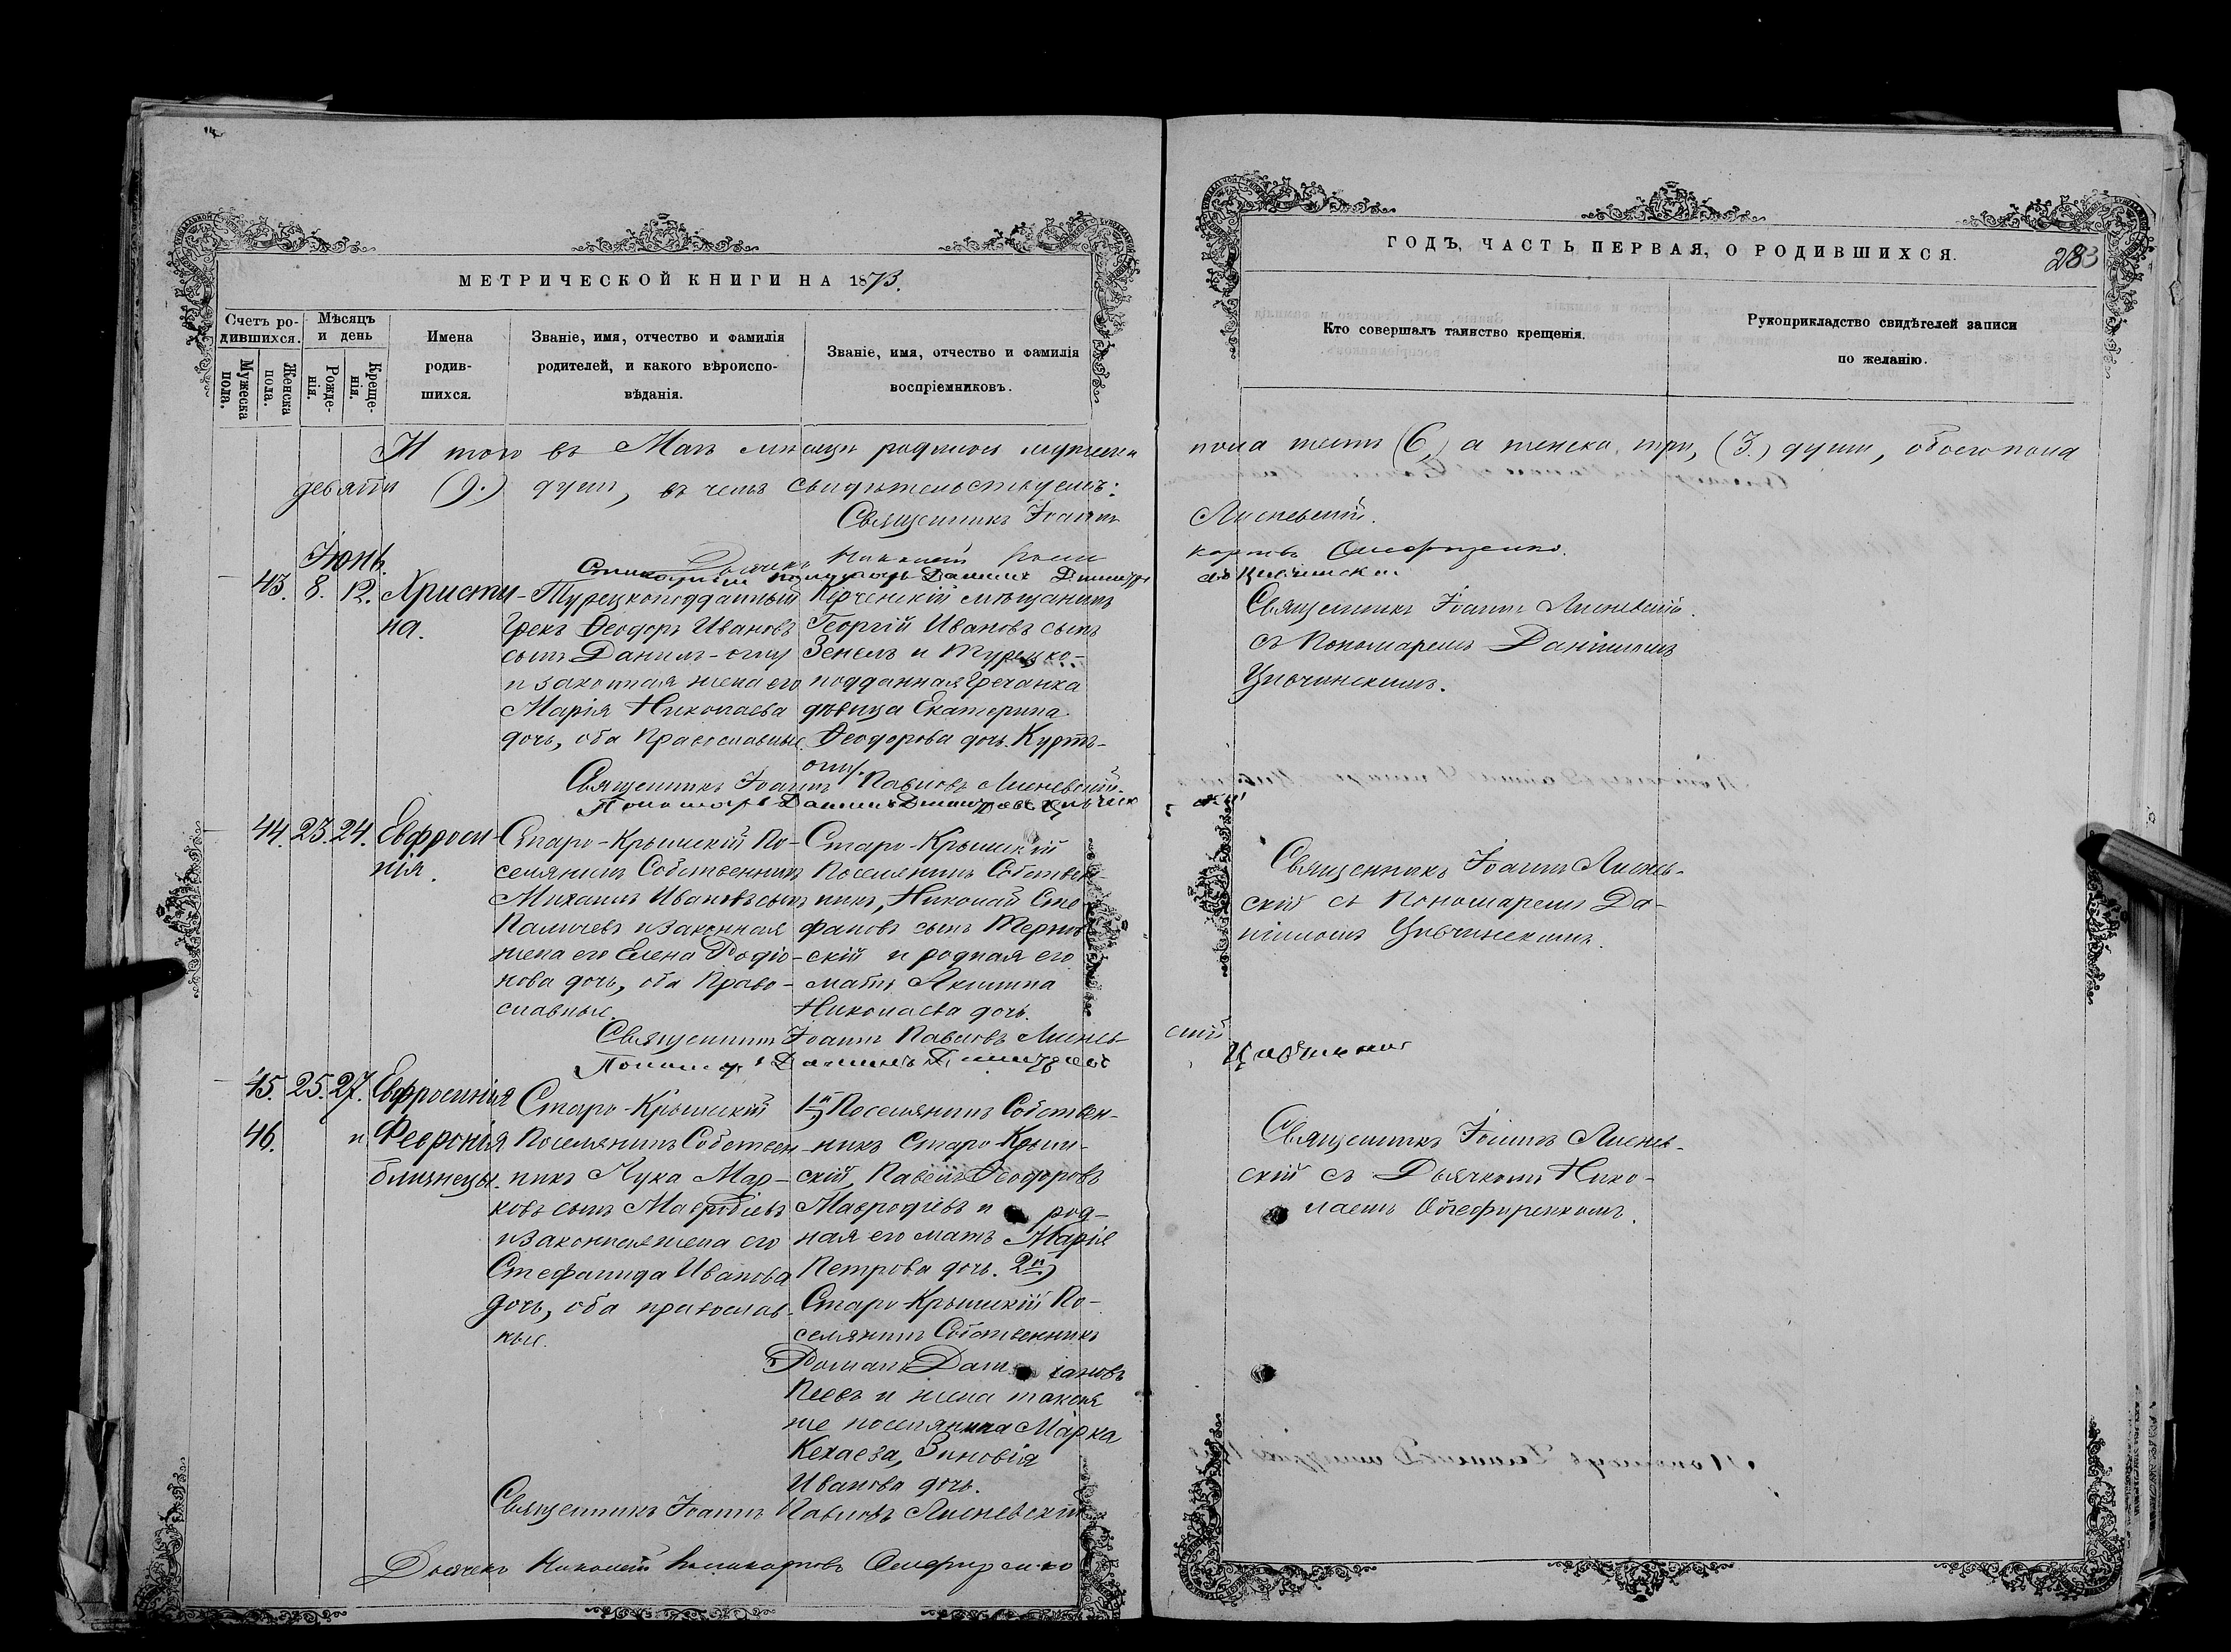 МЕТРИЧЕСКОЙ КНИГИ НА 1873.
Счетъ ро-
дившихся.
Мѣсяцъ
и день
Мужеска
пола.
Женска
пола.
Рожде-
нія.
Креще-
нія.
Имена
родив-
шихся.
Званіе, имя, отчество и фамилія
родителей, и какого вѣроиспо-
вѣданія.
Званіе, имя, отчество и фамилія
воспріемниковъ.
И того въ Маѣ мѣсяцѣ родилось мужеска
девять (9.) душъ, въ чемъ свидѣтельствуемъ:
Священникъ Іоаннъ
Дьячекъ Николай
Даніилъ
Іюнь.
43. 8. 12. Христи-
на.
Турецкоподданный
Грекъ Ѳеодоръ Ивановъ
сынъ Данилъ-оглу
и законная жена его
Марія Николаева
дочь, оба Православные.
Керченскій мѣщанинъ
Георгій Ивановъ сынъ
и Турецко-
подданная Гречанка
дѣвица Екатерина
Ѳеодорова дочь Куртъ-
оглу.
Священникъ Іоаннъ Павловъ Лисневскій.
Пономарь Даніилъ
44. 23. 24. Евфроси-
нія.
Старо-Крымскій По-
селянинъ Собственникъ
Михаилъ Ивановъ сынъ
Паличевъ и законная
жена его Елена Родіо-
нова дочь, оба Право-
славные.
Старо-Крымскій
Поселянинъ Собствен-
никъ, Николай Сте-
фановъ сынъ
скій и родная его
мать Акилина
Николаева дочь.
Священникъ Іоаннъ Павловъ Лиснев-
Пономарь Даніилъ
45. 25. 27. Евфросинія
46. и Февронія
близнецы.
Старо-Крымскій
Поселянинъ Собствен-
никъ Лука Мар-
ковъ сынъ Мавродіевъ
и законная жена его
Стефанида Иванова
дочь, оба православ-
ные.
1й) Поселянинъ Собствен-
никъ Старо-Крым-
скій, Павелъ Ѳеодоровъ
Мавродіевъ и род-
ная его мать Марія
Петрова дочь. 2й)
Старо-Крымскій По-
селянинъ Собственникъ
Романъ
и жена таковая
же поселянина Марка
Кехаева, Зиновія
Иванова дочь.
Священникъ Іоаннъ Павловъ Лисневскій
Дьячекъ Николай Поликарповъ
ГОДЪ, ЧАСТЬ ПЕРВАЯ, О РОДИВШИХСЯ.
283
Кто совершалъ таинство крещенія.
Рукоприкладство свидѣтелей записи
по желанію.
пола шесть (6,) а женска, три, (3.) души, обоего пола
Лисневскій.
Священникъ Іоаннъ Лисневскій
съ Пономаремъ Даніиломъ
Цывчинскимъ.
Священникъ Іоаннъ Лиснев-
скій съ Пономаремъ Да-
ніиломъ Цывчинскимъ.
скій
Священникъ Іоаннъ Лиснев-
скій съ Дьячкомъ Нико-
лаемъ